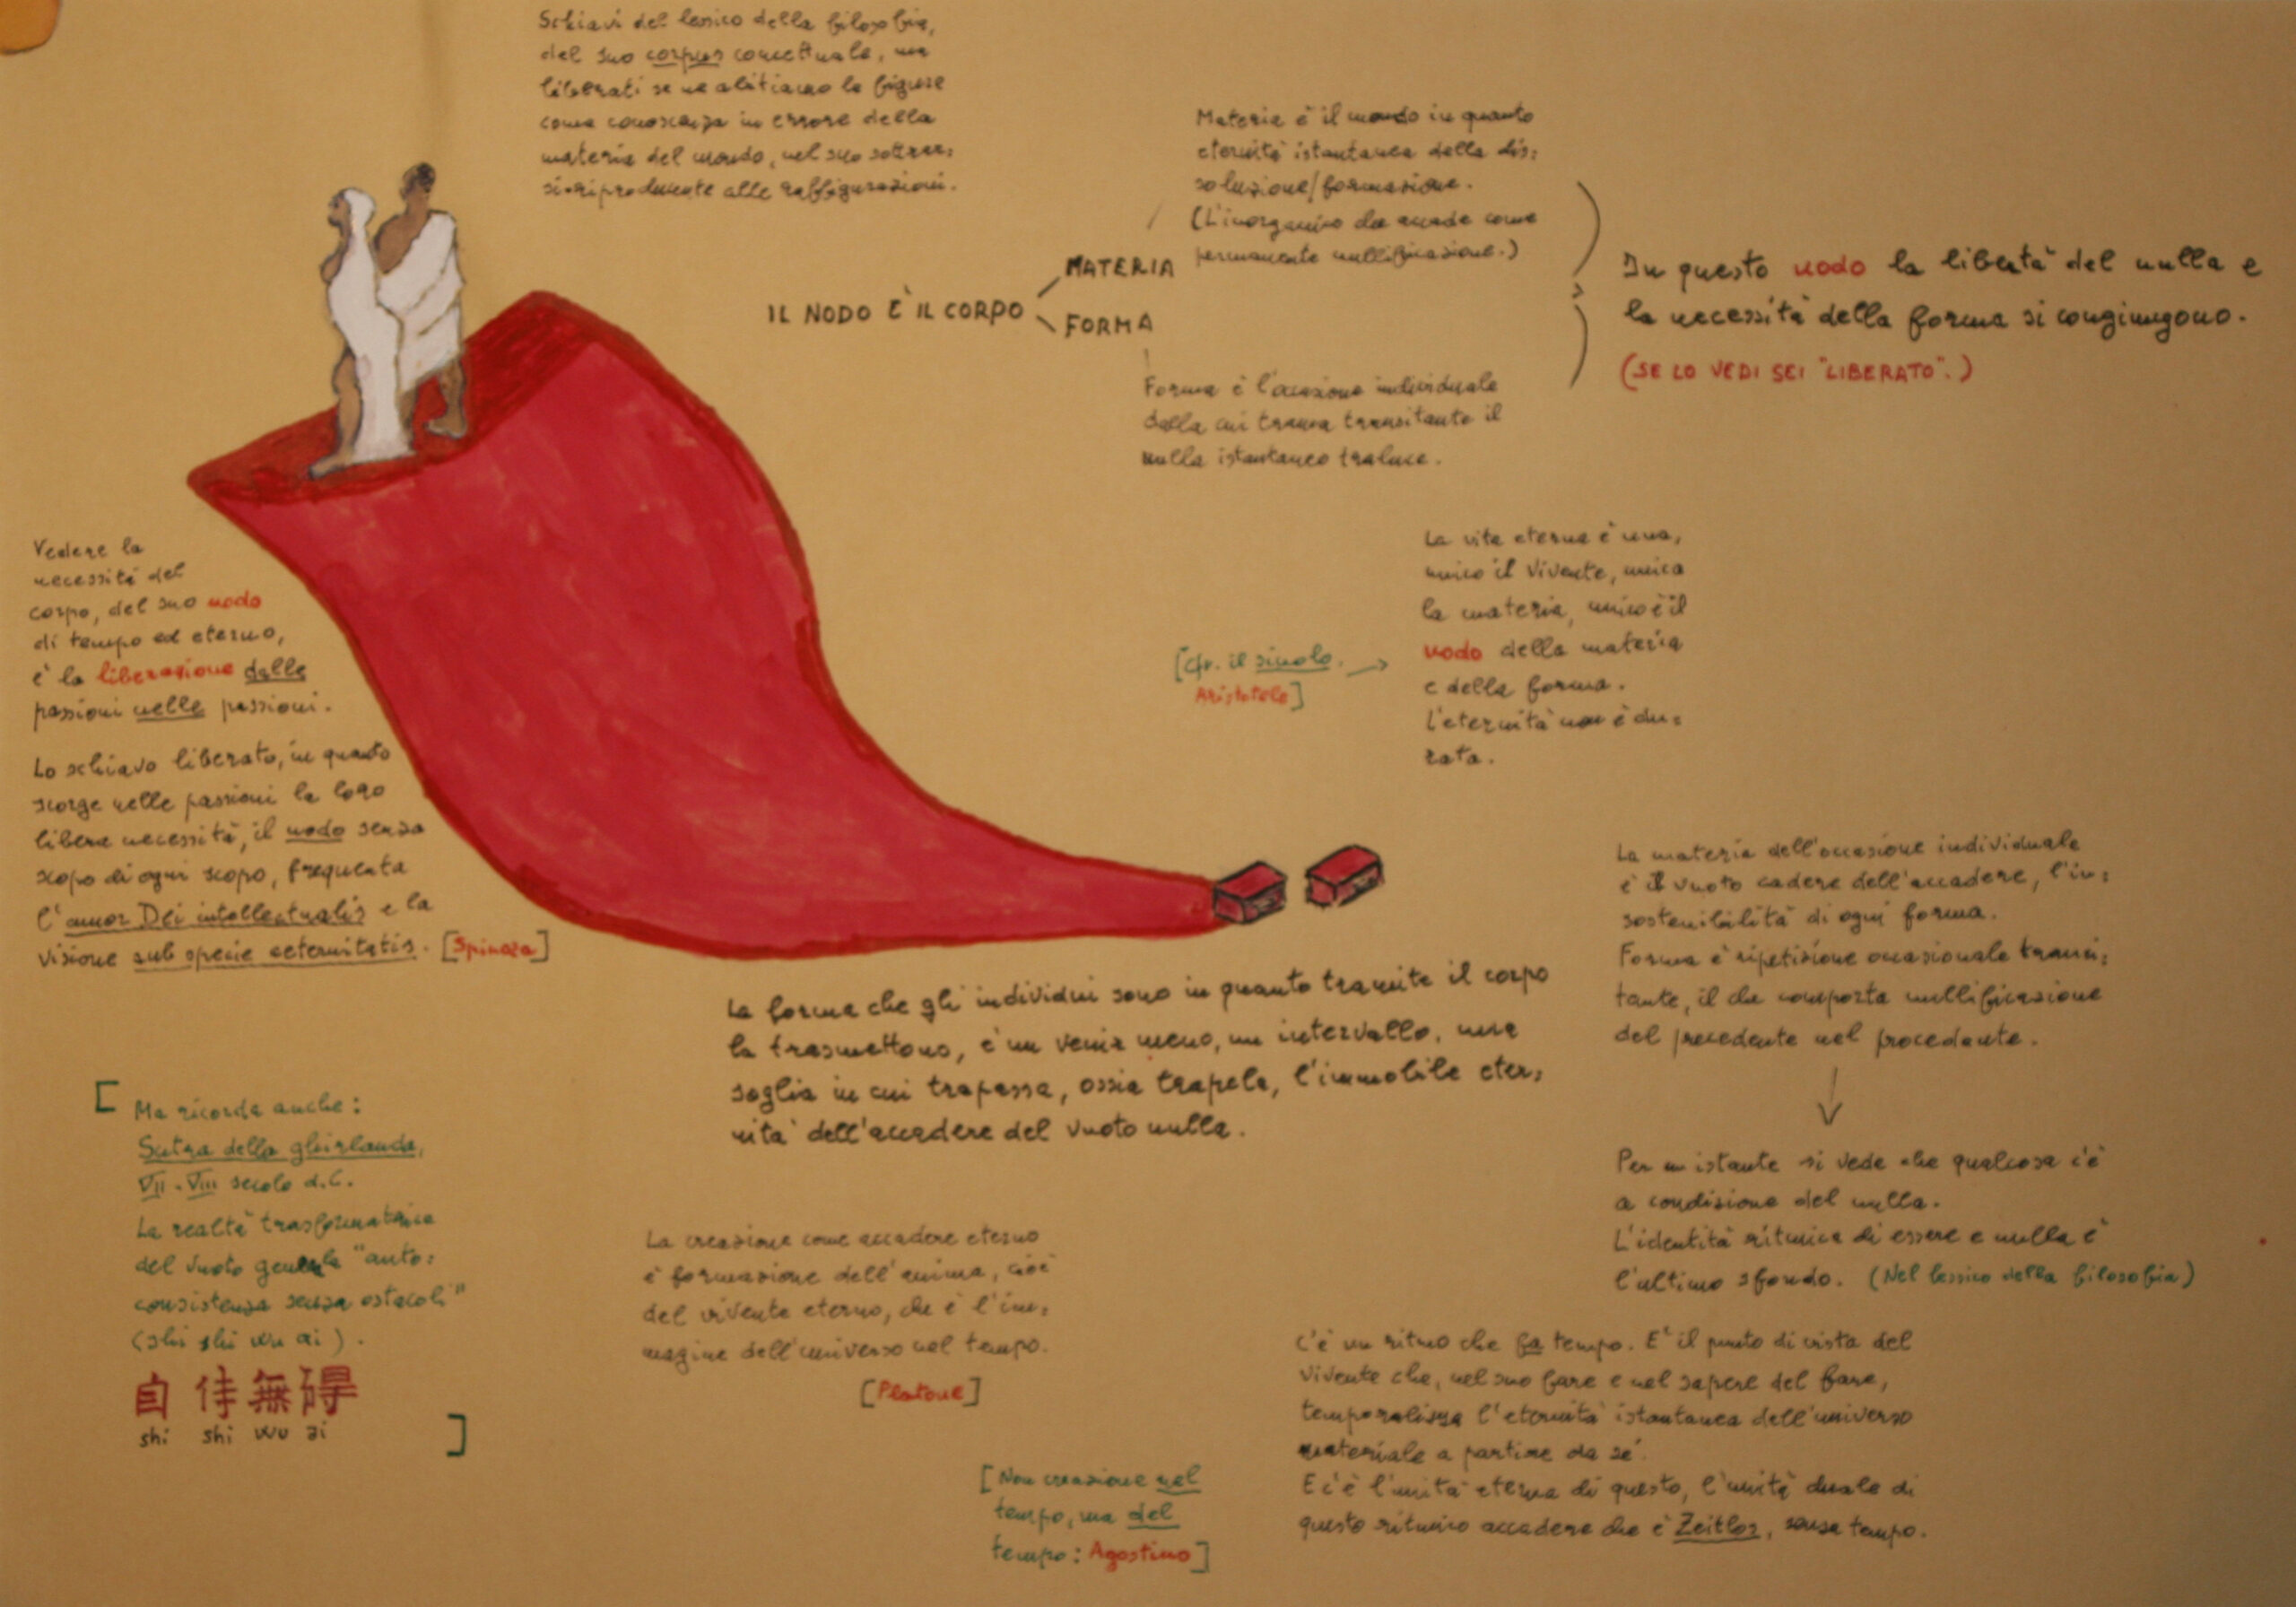 Schiavi del lessico della filosofia,
del suo corpus concettuale, ma
liberati se ne abitiamo le figure
come conoscenza in errore della
materia del mondo, nel suo sottrar=
si-riproducente alle raffigurazioni.
IL NODO È IL CORPO
MATERIA
FORMA
Materia è il mondo in quanto
eternità istantanea della dis=
soluzione/formazione.
(L'inorganico che accade come
permanente nullificazione.)
Forma è l'occasione individuale
dalla cui trama transitante il
nulla istantaneo traluce.
In questo nodo la libertà del nulla e
la necessità della forma si congiungono.
(SE LO VEDI SEI "LIBERATO".)
Vedere la
necessità del
corpo, del suo nodo
di tempo ed eterno,
è la liberazione dalle
passioni nelle passioni.
Lo schiavo liberato, in quanto
scorge nelle passioni la loro
libera necessità, il nodo senza
scopo di ogni scopo, frequenta
l'amor Dei intellectualis e la
visione sub specie aeternitatis. [Spinoza]
[Cfr. il sinolo.
Aristotele]
La vita eterna è una,
unico il vivente, unica
la materia, unico è il
nodo della materia
e della forma.
L'eternità non è du=
rata.
La forma che gli individui sono in quanto tramite il corpo
la trasmettono, è un venir meno, un intervallo, una
soglia in cui trapassa, ossia trapela, l'immobile eter=
nità dell'accadere del vuoto nulla.
La materia dell'occasione individuale
è il vuoto cadere dell'accadere, l'in=
sostenibilità di ogni forma.
Forma è ripetizione occasionale transi=
tante, il che comporta nullificazione
del precedente nel procedente.
Per un istante si vede che qualcosa c'è
a condizione del nulla.
L'identità ritmica di essere e nulla è
l'ultimo sfondo. (Nel lessico della filosofia)
[Ma ricorda anche:
Sutra della ghirlanda,
VII-VIII secolo d.C.
La realtà trasformatrice
del vuoto genera la "auto=
consistenza senza ostacoli"
(shi shi wu ai).
自 侍 無 礙
shi shi wu ai ]
La creazione come accadere eterno
è formazione dell'anima, cioè
del vivente eterno, che è l'im=
magine dell'universo nel tempo.
[Platone]
[Non creazione nel
tempo, ma del
tempo: Agostino]
C'è un ritmo che fa tempo. E' il punto di vista del
vivente che, nel suo fare e nel sapere del fare,
temporalizza l'eternità istantanea dell'universo
materiale a partire da sé.
E c'è l'unità eterna di questo, l'unità duale di
questo ritmico accadere che è Zeitlos, senza tempo.